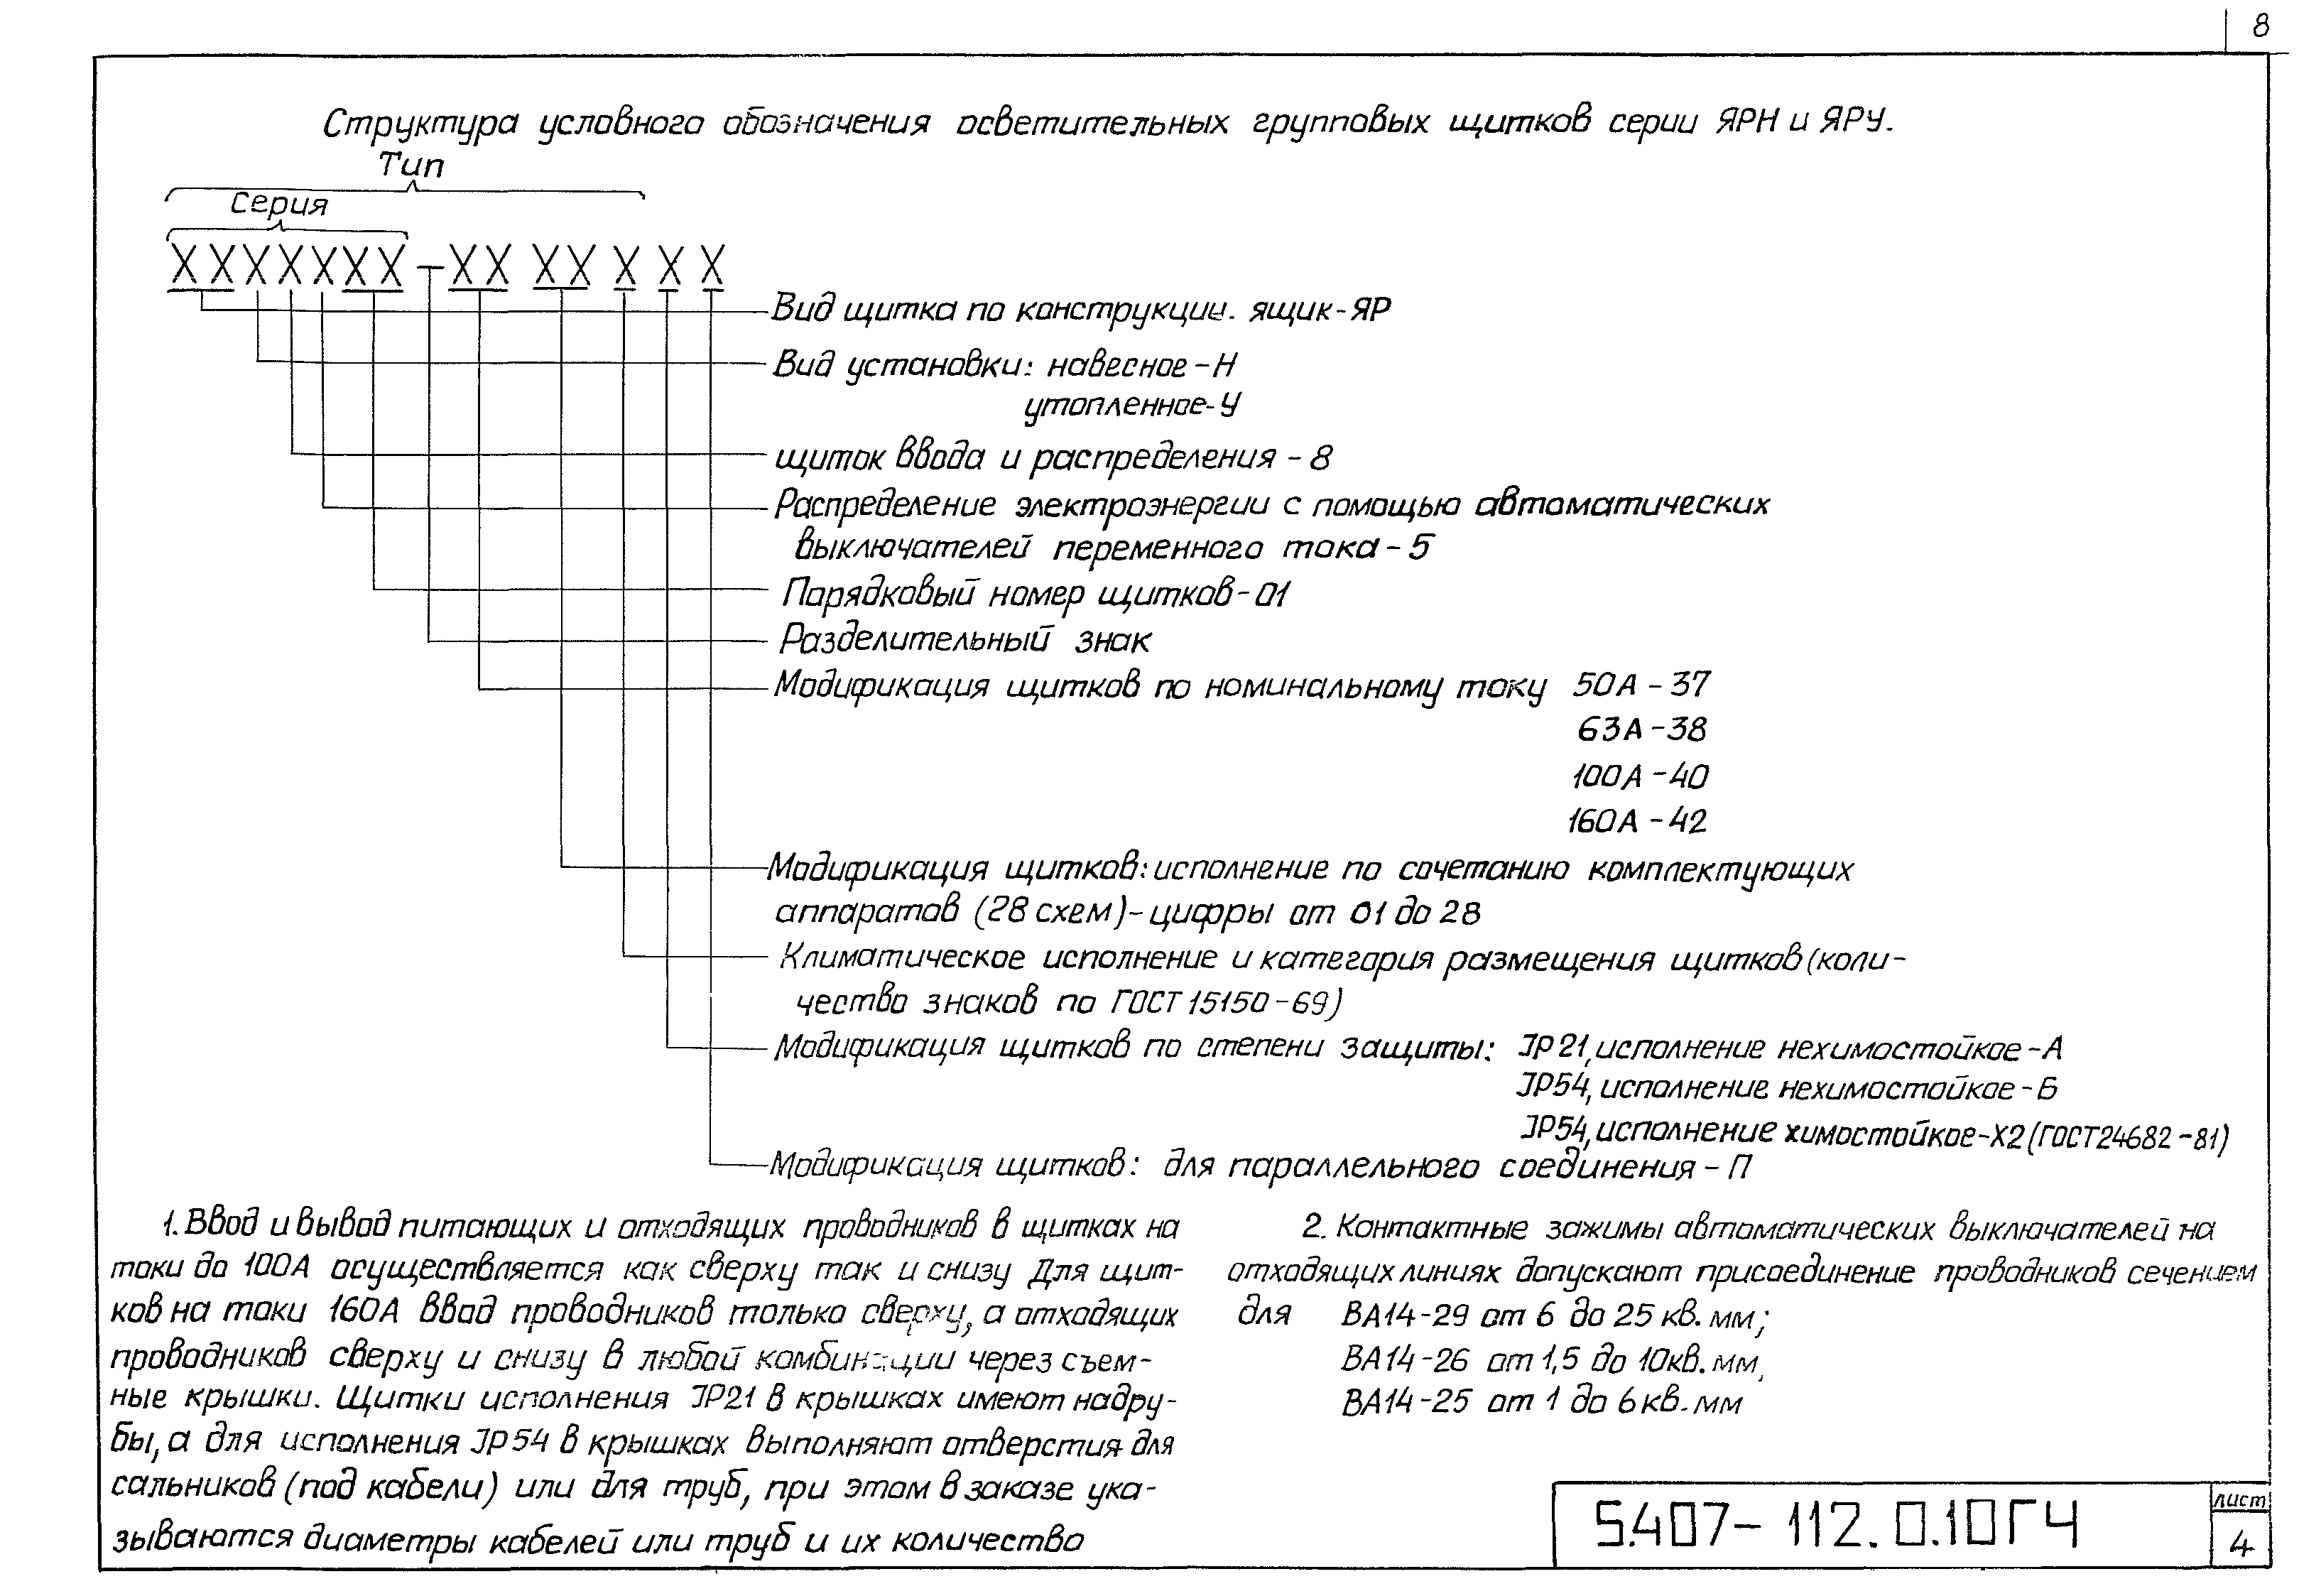 8
Структура условного обозначения осветительных групповых щитков серии ЯРН и ЯРУ.
Тип
Серия
ХХХХХХХ-ХХ ХХ Х Х Х
Вид щитка по конструкции. ящик-ЯР
Вид установки: навесное-Н
утопленное-У
щиток ввода и распределения-8
Распределение электроэнергии с помощью автоматических
выключателей переменного тока-5
Порядковый номер щитков-01
Разделительный знак
Модификация щитков по номинальному току 50А-37
63А-38
100А-40
160А-42
Модификация щитков: исполнение по сочетанию комплектующих
аппаратов (28 схем)-цифры от 01 до 28
Климатическое исполнение и категория размещения щитков (коли-
чество знаков по ГОСТ 15150-69)
Модификация щитков по степени защиты: JP21, исполнение нехимостойкое-А
JP54, исполнение нехимостойкое-Б
JP54, исполнение химостойкое-Х2 (ГОСТ24682-81)
Модификация щитков: для параллельного соединения-П
1. Ввод и вывод питающих и отходящих проводников в щитках на
токи до 100А осуществляется как сверху так и снизу Для щит-
ков на токи 160А ввод проводников только сверху, а отходящих
проводников сверху и снизу в любой комбинации через съем-
ные крышки. Щитки исполнения JP21 в крышках имеют надру-
бы, а для исполнения JP54 в крышках выполняют отверстия для
сальников (под кабели) или для труб, при этом в заказе ука-
зываются диаметры кабелей или труб и их количество
2. Контактные зажимы автоматических выключателей на
отходящих линиях допускают присоединение проводников сечением
для ВА14-29 от 6 до 25 кв. мм;
ВА14-26 от 1,5 до 10кв. мм,
ВА14-25 от 1 до 6 кв. мм
5.407-112.0.10ГЧ
лист
4